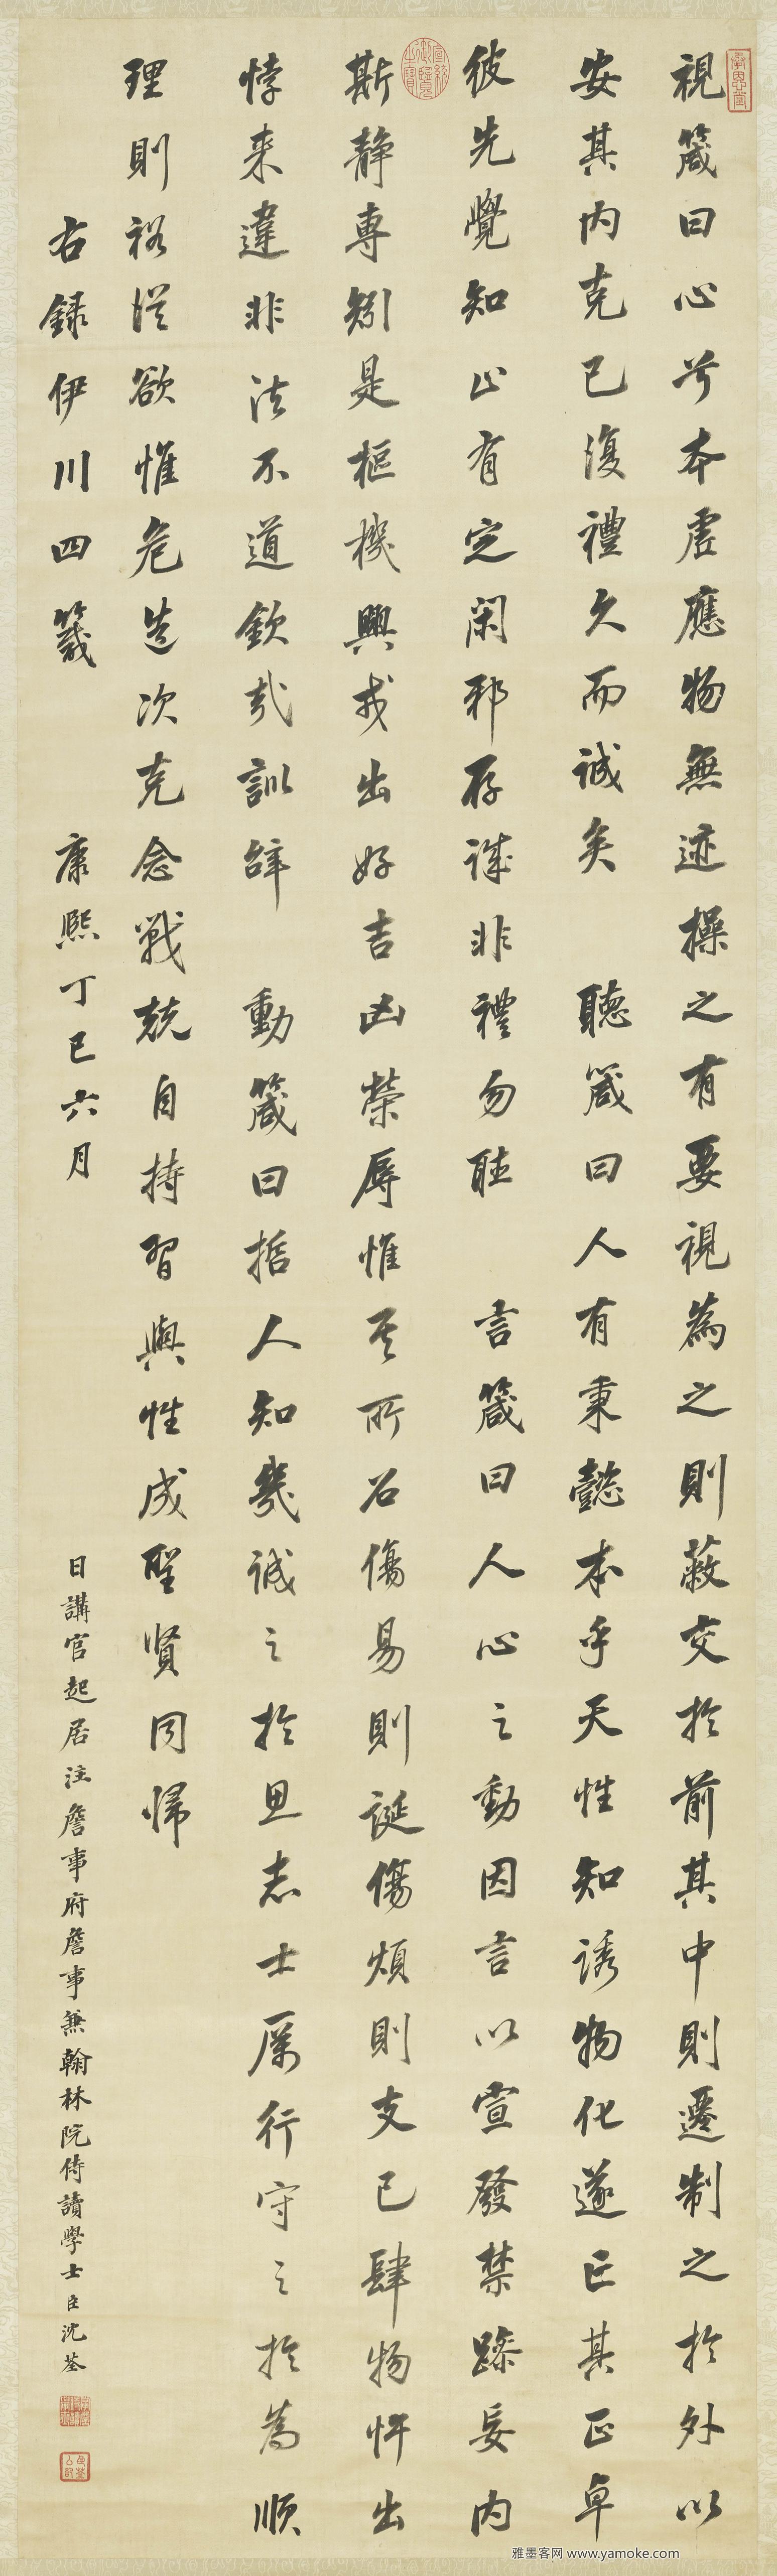 視箴曰心兮本虛應物無迹操之有要視為之則蔽交於前其中則遷制之於外以
安其内克己復禮久而誠矣 聽箴曰人有秉懿本乎天性知誘物化遂亡其正卓
彼先覺知止有定閑邪存誠非禮勿聽 言箴曰人心之動因言以宣發禁躁妄内
斯靜專矧是樞機興戎出好吉凶榮辱惟其所召傷易則誕傷煩則支己肆物忤出
悖来違非法不道欽哉訓辭 動箴曰哲人知幾誠之於思志士厲行守之於為順
理則裕從欲惟危造次克念戰兢自持習與性成聖賢同歸
右錄伊川四箴 康熙丁巳六月 日講官起居注詹事府詹事兼翰林院侍讀學士臣沈荃
宣統御覽之寶
雅墨客网 www.yamoke.com